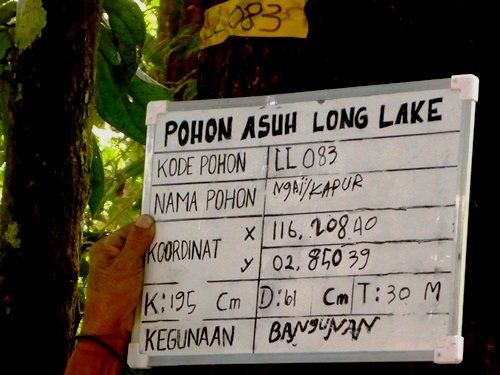 LL083
POHON ASUH LONG LAKE
KODE POHON LL 083
NAMA POHON NgAji/KAPUR
KOORDINAT X 116.20840
y 02.85039
K:195 Cm D:61 Cm T:30 M
KEGUNAAN BANgUNAN